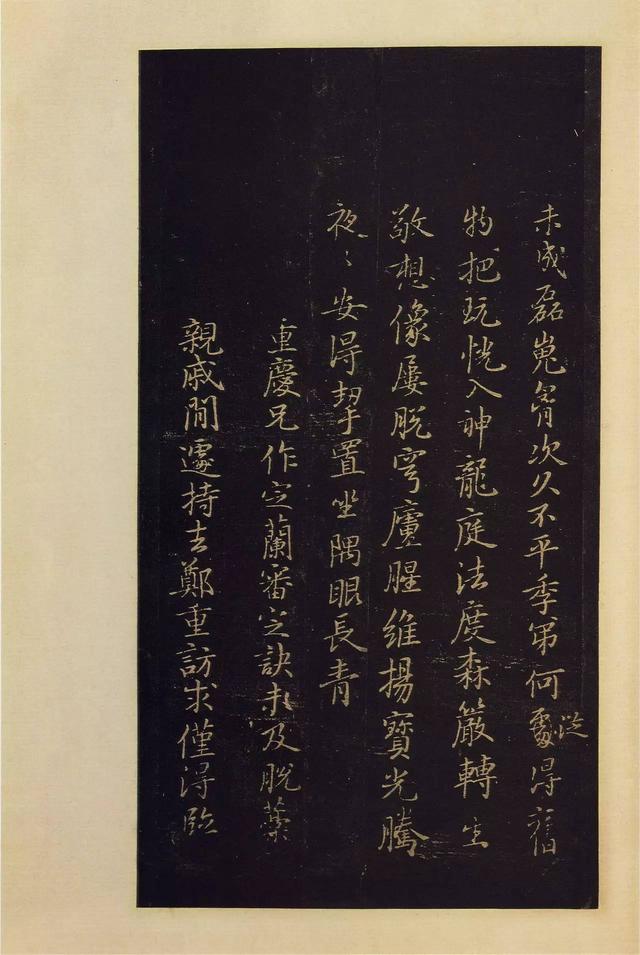 未成磊嵬胷次久不平季弟何處從得舊
物把玩恍入神龍庭法度森嚴轉生
敬想像屢脫穹廬腥維揚寶光騰
夜〻安得挈置坐隅眼長青
重慶兄作定蘭審定訣未及脫藁
親戚間遽持去鄭重訪求僅得臨